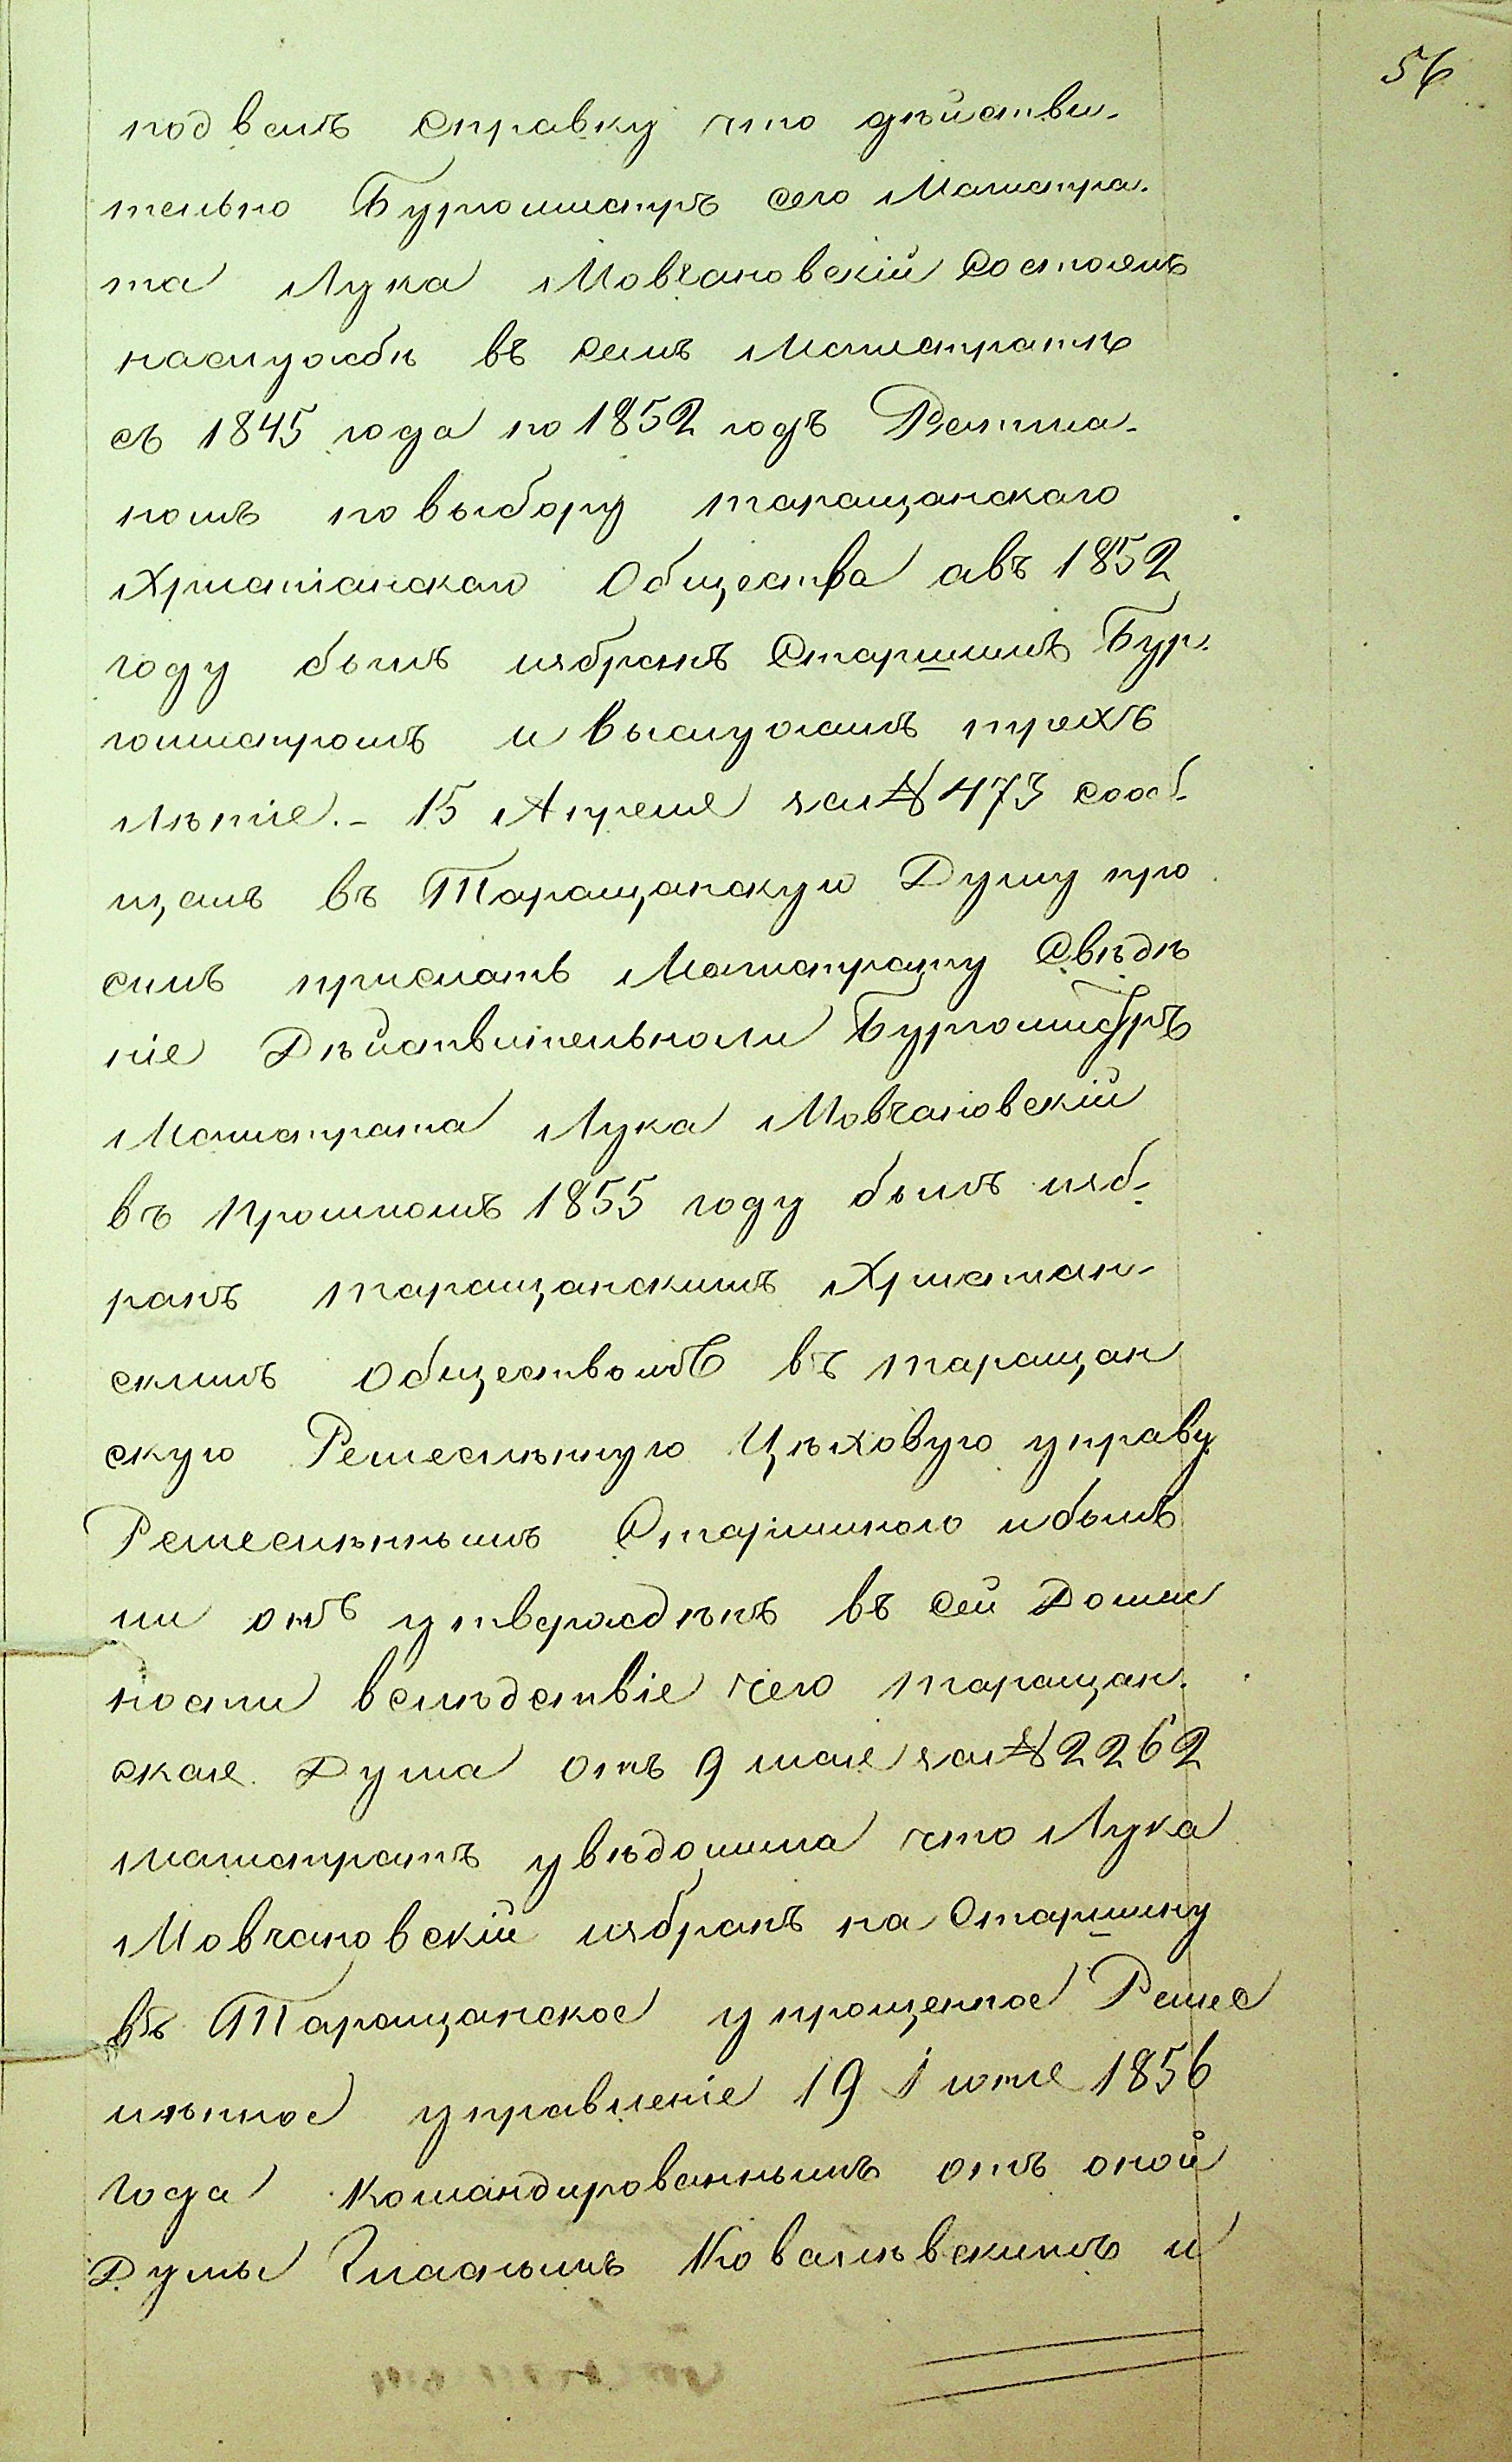 56
подвелъ справку что дѣйстви-
тельно Бургомистръ сего Магистра-
та Лука Мовчановскій состоялъ
наслужбѣ въ семъ Магистратѣ
съ 1845 года по 1852 годъ Ратма-
номъ повыбору таращанскаго
Христіанскаго Общества авъ 1852
году былъ избранъ Старшимъ Бур-
гомистромъ и выслужилъ трехъ
лѣтіе. - 15 Апреля за № 473 сооб-
щалъ въ Таращанскую Думу про
силъ прислать Магистрату Свѣдѣ
ніе Дѣйствительноли Бургомистръ
Магистрата Лука Мовчановскій
въ прошломъ 1855 году былъ изб-
ранъ таращанскимъ Христиан-
скимъ Обществомъ въ таращан
скую Ремеслѣнную Цѣховую управу
Ремеслѣннымъ Старшиною ибылъ
ли онъ утверждѣнъ въ сей Долж
ности вслѣдствіе чего таращан-
ская Дума отъ 9 мая за № 2262
магистратъ увѣдомила что Лука
Мовчановскій избранъ на Старшину
въ Таращанское упрощенное Ремес
лѣнное управленіе 19 Іюня 1856
года Командированнымъ отъ оной
Думы Гласнымъ Ковалѣвскимъ и